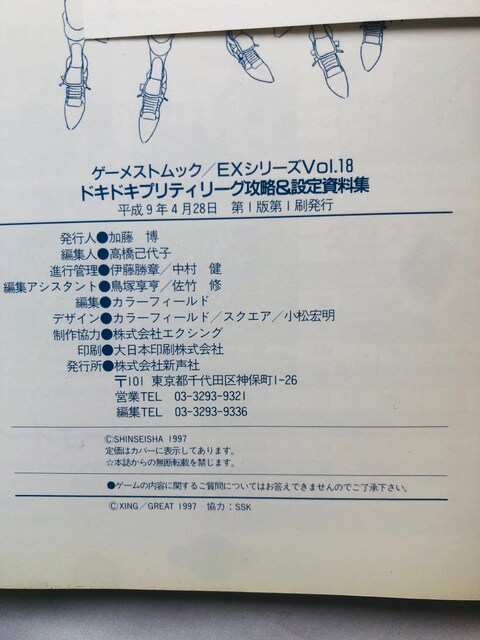 ゲーメストムック/EXシリーズVol.18
ドキドキプリティリーグ攻略&設定資料集
平成9年4月28日 第1版第1刷発行
発行人●加藤 博
編集人●高橋己代子
進行管理●伊藤勝章/中村 健
編集アシスタント●鳥塚享亨/佐竹 修
編集●カラーフィールド
デザイン●カラーフィールド/スクエア/小松宏明
制作協力●株式会社エクシング
印刷●大日本印刷株式会社
発行所●株式会社新声社
〒101 東京都千代田区神保町1-26
営業TEL 03-3293-9321
編集TEL 03-3293-9336
©SHINSEISHA 1997
定価はカバーに表示してあります。
☆本誌からの無断転載を禁じます。
●ゲームの内容に関するご質問についてはお答えできませんのでご了承下さい。
©XING/GREAT 1997 協力:SSK